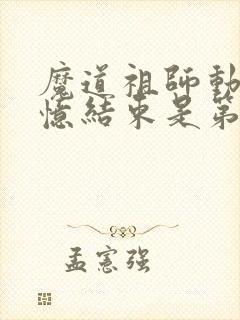 魔道祖師動
憶結束是第
孟憲強